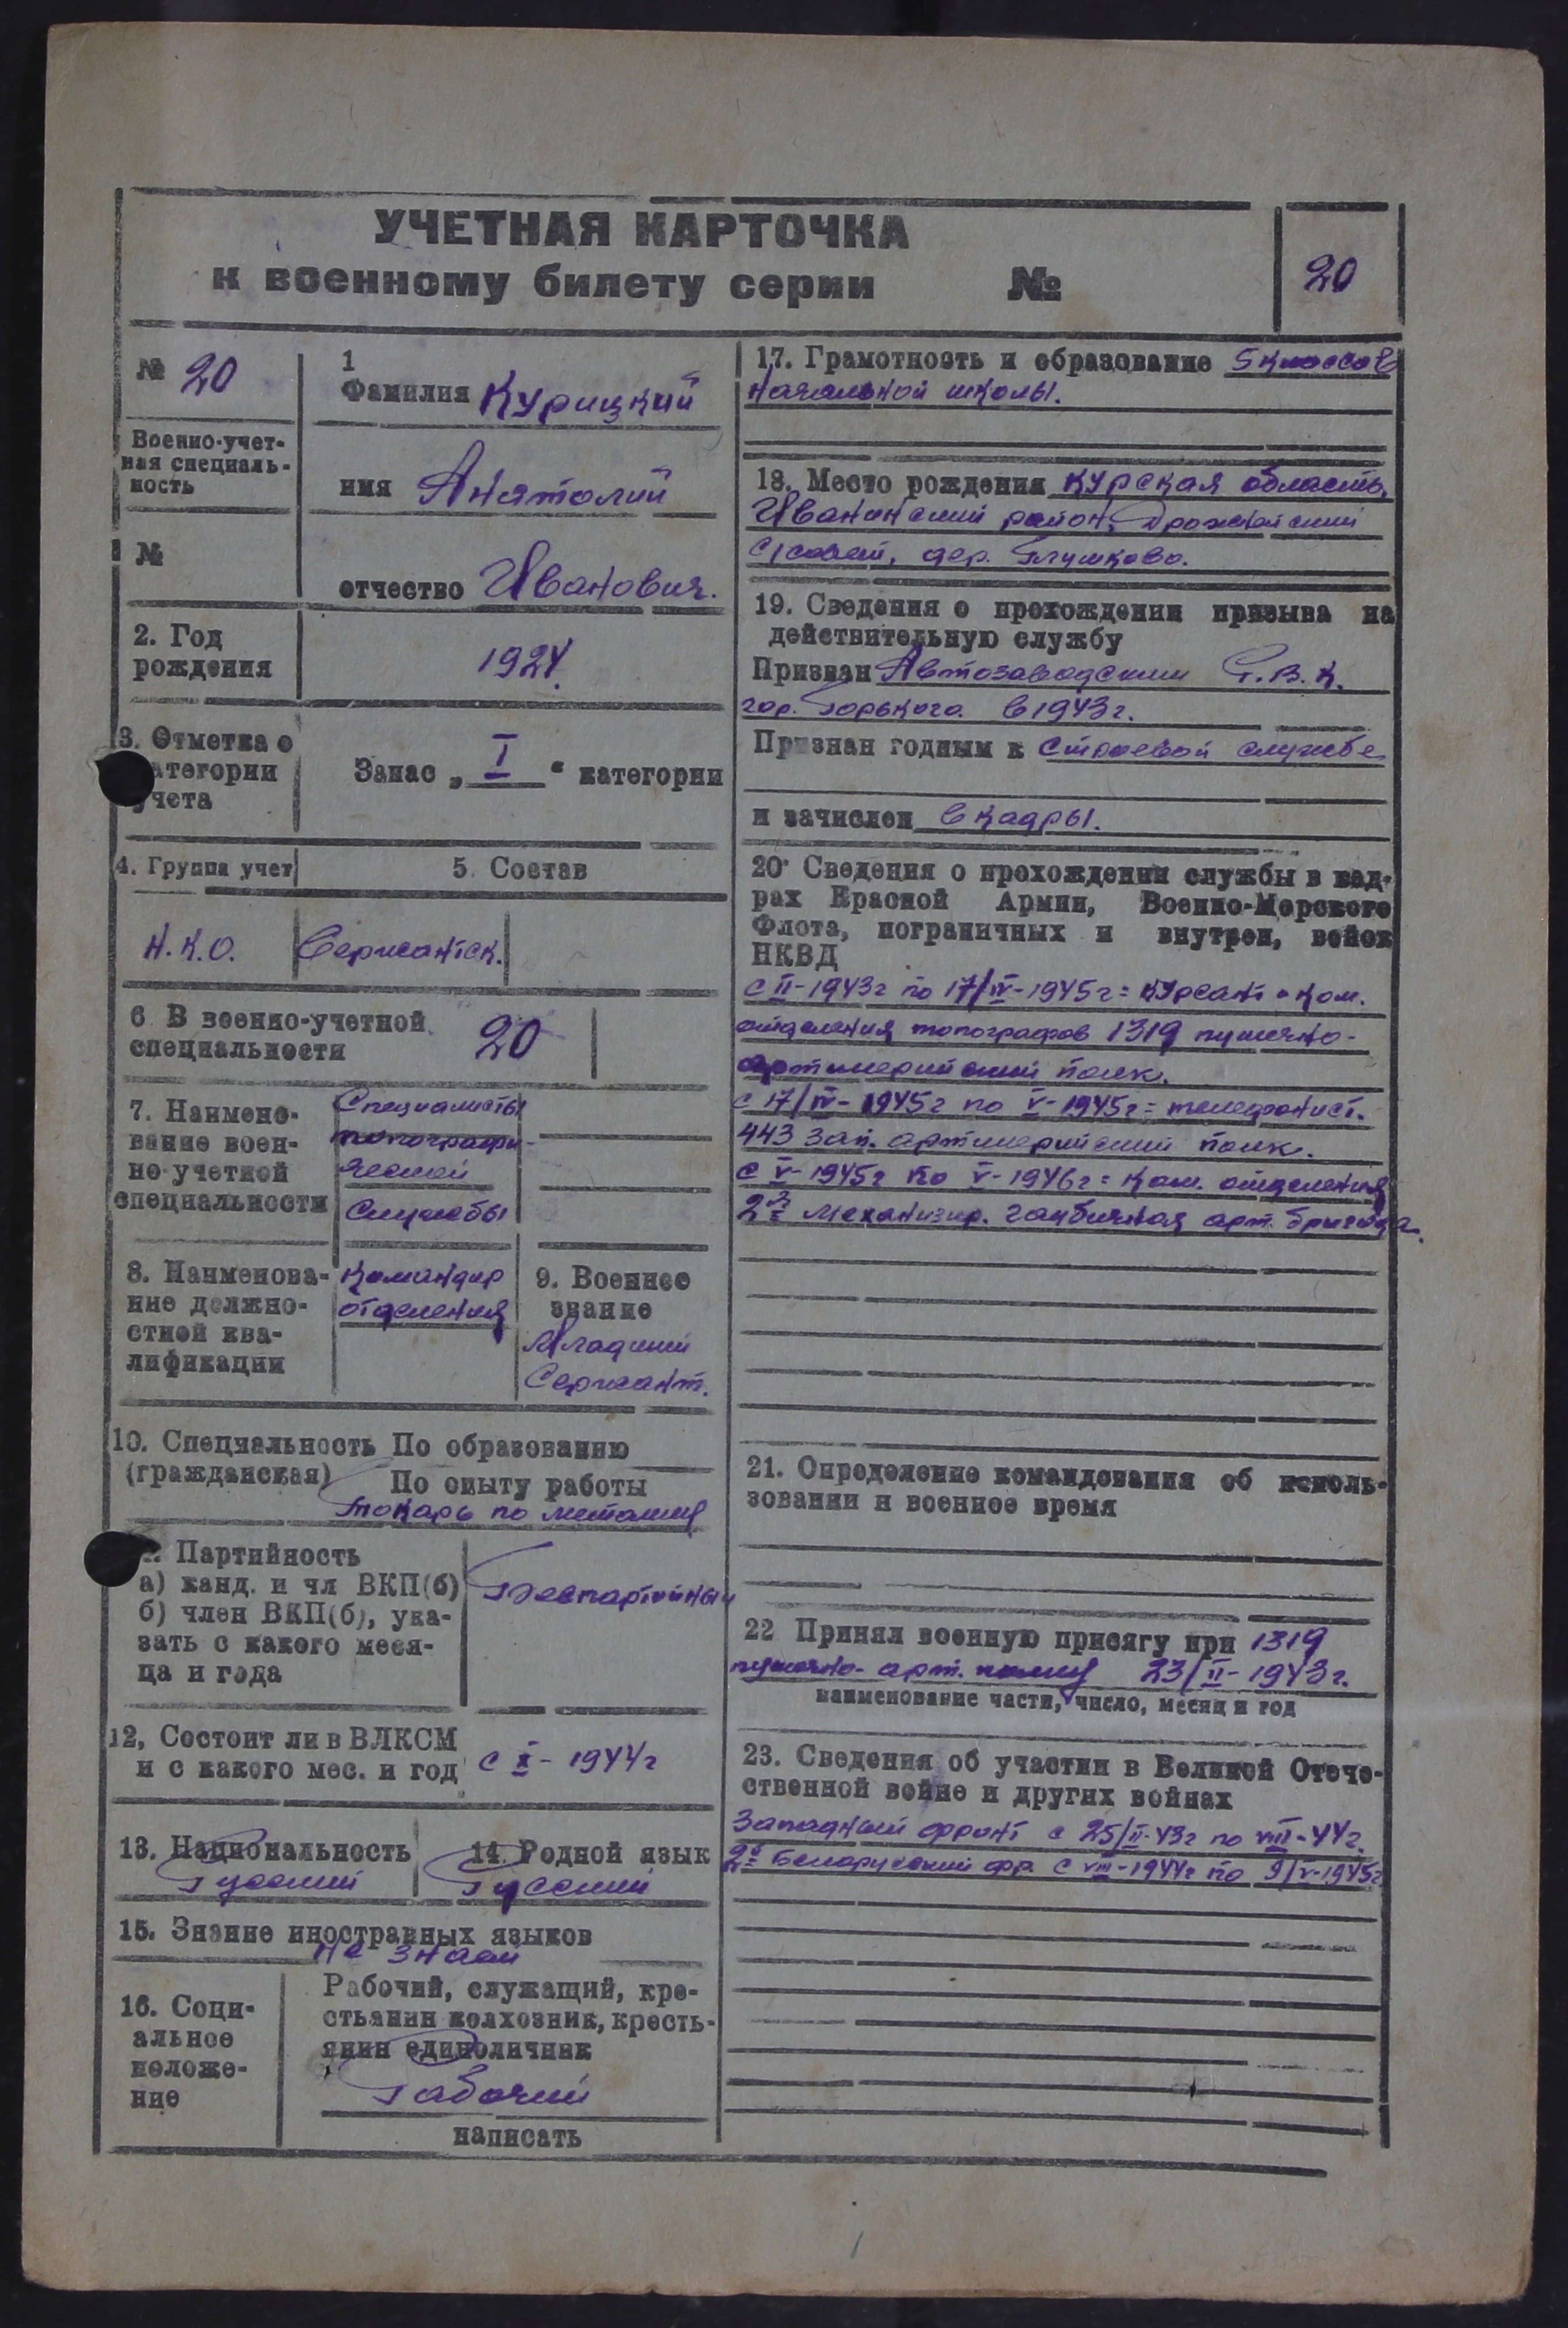 УЧЕТНАЯ КАРТОЧКА
к военному билету серии №
20
№ 20
Военно-учет-
ная специаль-
ность
№
1
Фамилия Курицкий
имя Анатолий
отчество Иванович.
2. Год
рождения
1924
3. Отметка о
категории
учета
Запас „ I “ категории
4. Группа учет
5. Состав
Н.К.О.
Сержантск.
6 В военно-учетной
специальности
20
7. Наимено-
вание воен-
но-учетной
специальности
Специалисты
топографи-
ческой
службы
8. Наименова-
ние должно-
стной ква-
лификации
Командир
отделения
9. Военное
звание
Младший
Сержант.
10. Специальность По образованию
(гражданская) По опыту работы
Токарь по металлу
Партийность
а) канд. и чл ВКП(б)
б) член ВКП(б), ука-
зать с какого меся-
ца и года
Беспартийный
12, Состоит ли в ВЛКСМ
и с какого мес. и год
с X - 1944г
13. Национальность
Русский
14. Родной язык
Русский
15. Знание иностранных языков
не знает
16. Соци-
альное
положе-
ние
Рабочий, служащий, кре-
стьянин колхозник, кресть-
янин единоличник
Рабочий
написать
17. Грамотность и образование 5 классов
начальной школы.
18. Место рождения Курская область,
Иванинский район,
с/совет, дер. Глушково.
19. Сведения о прохождении призыва на
действительную службу
Призван Автозаводским Р.В.К.
гор. Горького в 1943г.
Признан годным к строевой службе
и зачислен в кадры.
20. Сведения о прохождении службы в кад-
рах Красной Армии, Военно-Морского
Флота, пограничных и внутрен, войск
НКВД
с II-1943г по 17/IV-1945г = курсант - ком.
отделения топографов 1319 пушечно-
артиллерийский полк.
с 17/IV-1945г по V-1945г = телефонист.
443 зап. артиллерийский полк.
с V-1945г по V-1946г = ком. отделения
2я механизир. гаубичная арт. бригада.
21. Определение командования об исполь-
зовании и военное время
22 Принял военную присягу при 1319
пушечно-арт. полку 23/II-1943г.
наименование части, число, месяц и год
23. Сведения об участии в Великой Отече-
ственной войне и других войнах
Западный фронт с 25/II-43г по VIII-44г.
2й Белорусский фр. с VIII-1944г по 9/V-1945г